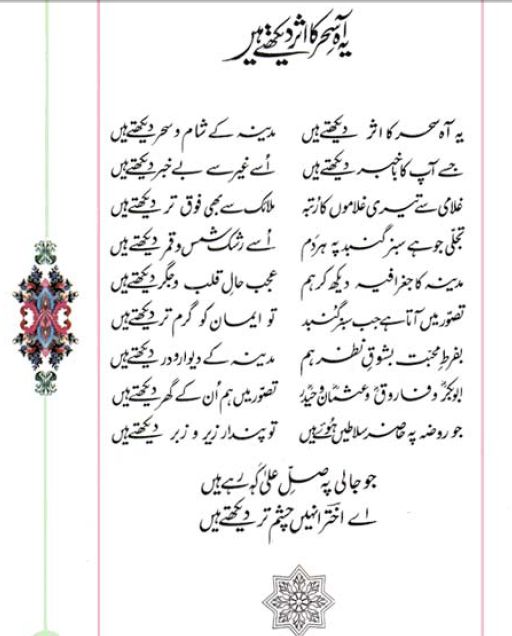 یہ آہ سحر کا اثر دیکھتے ہیں
یہ آہ سحر کا اثر دیکھتے ہیں مدینہ کے شام و سحر دیکھتے ہیں
جسے آپ کا باخبر دیکھتے ہیں اُسے غیر سے بے خبر دیکھتے ہیں
غلامی سے تیری غلاموں کا رُتبہ ملائک سے بھی فوق تر دیکھتے ہیں
تجلّی جو ہے سبز گنبد پہ ہر دَم اُسے رشک شمس و قمر دیکھتے ہیں
مدینہ کا جغرافیہ دیکھ کر ہم عجب حال قلب و جگر دیکھتے ہیں
تصوّر میں آتا ہے جب سبز گنبد تو ایمان کو گرم تر دیکھتے ہیں
بفرطِ محبّت بشوقِ نظر ہم مدینہ کے دیوار و در دیکھتے ہیں
ابوبکرؓ و فاروقؓ و عثمانؓ و حیدرؓ تصوّر میں ہم اُن کے گھر دیکھتے ہیں
جو روضہ پہ حاضر سلاطیں ہُوئے ہیں تو پندار زیر و زبر دیکھتے ہیں
جو جالی پہ صلِّ علیٰ کہہ رہے ہیں
اے اخترؔ انہیں چشم تر دیکھتے ہیں